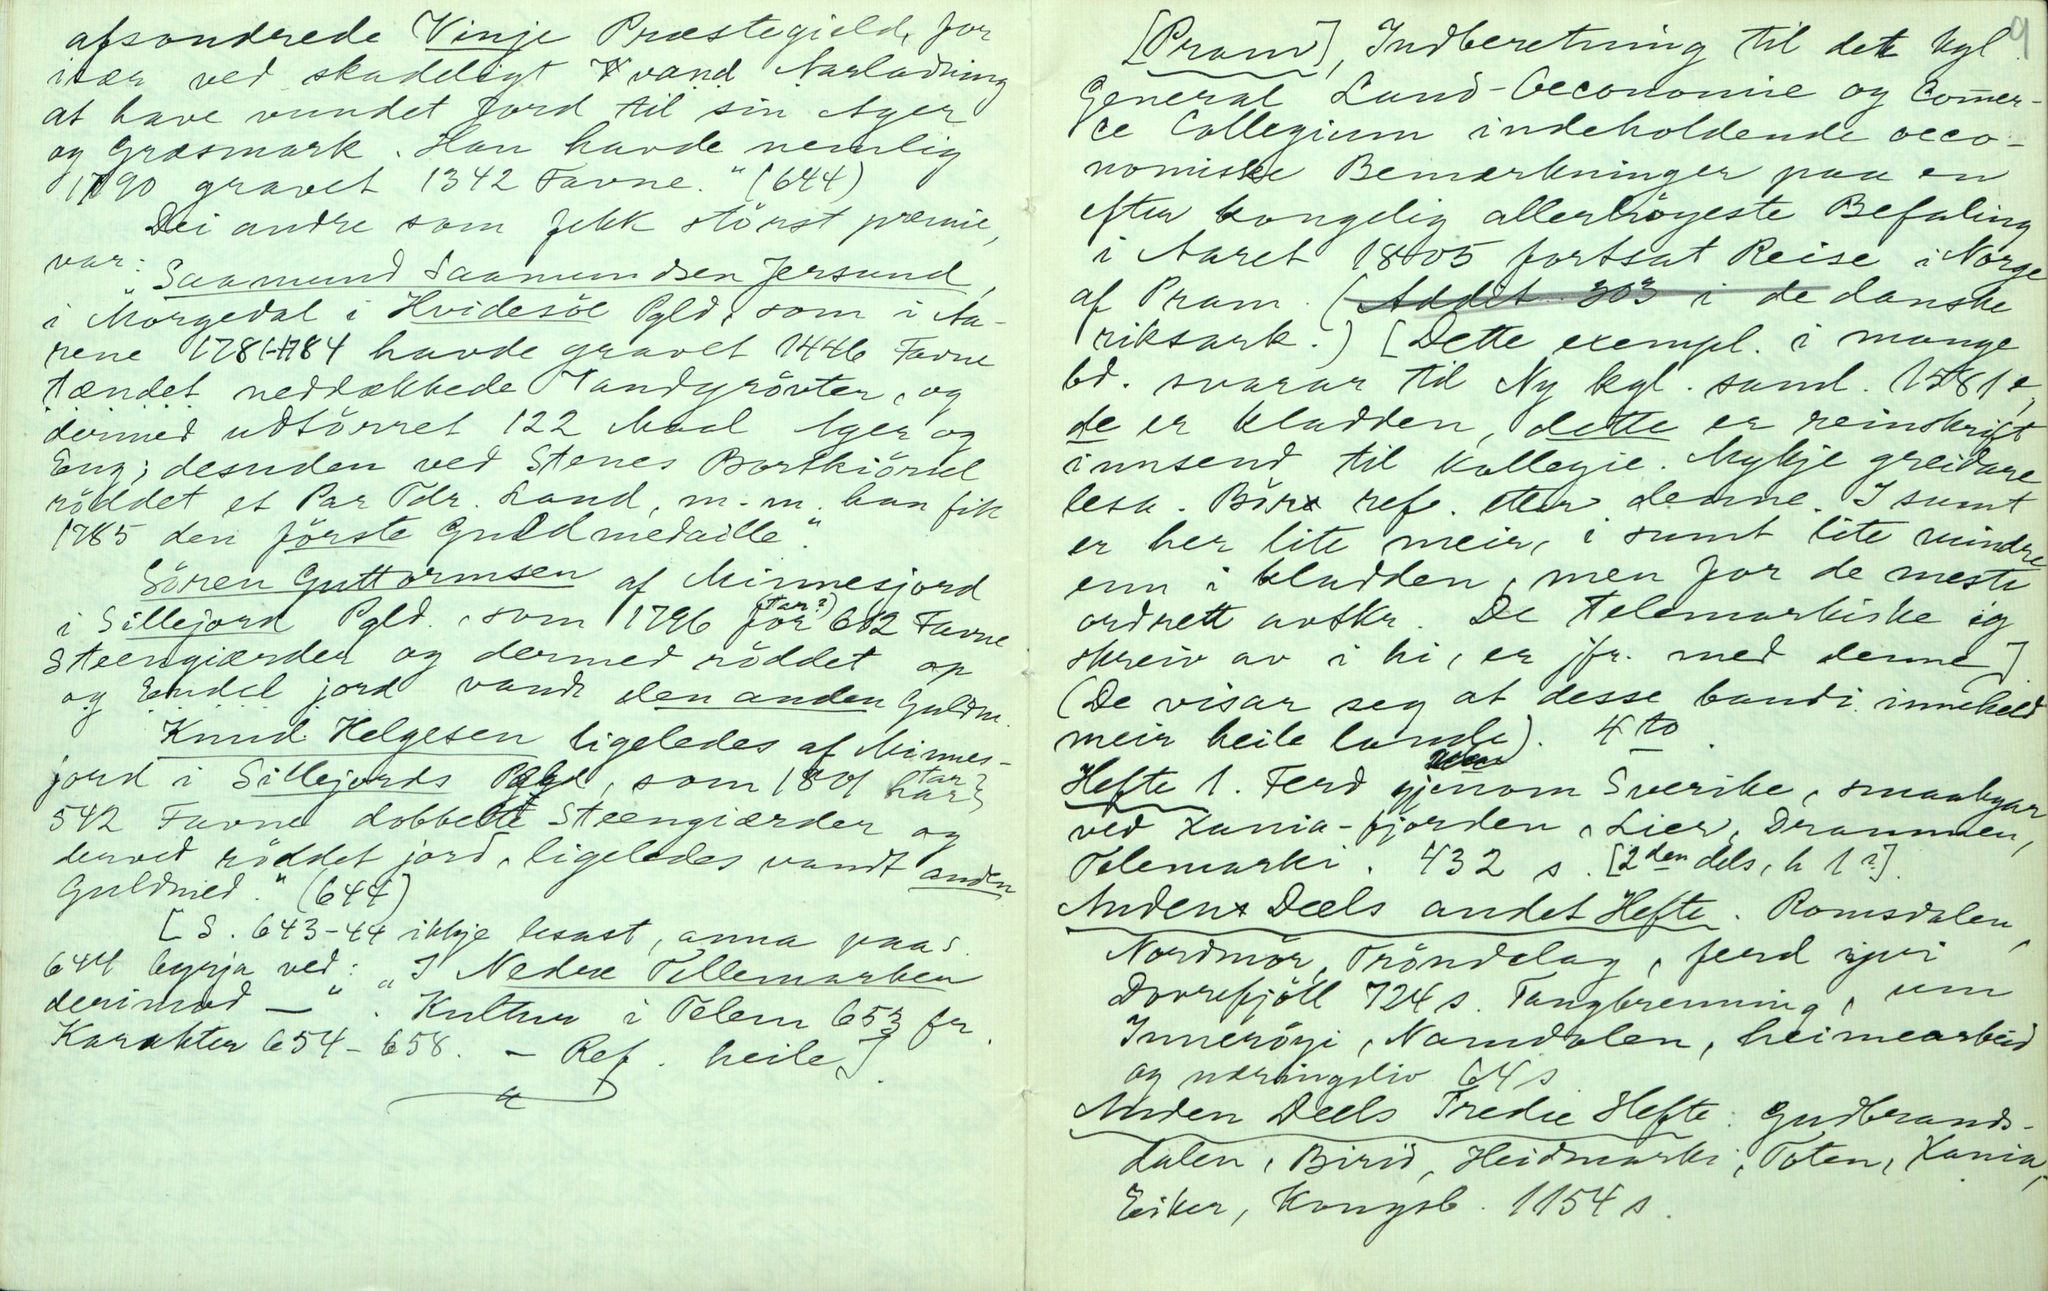 afsondrede Vinje Præstegield, for
især ved skadeligt vand Narladning
at have vundet Jord til sin Ager
og Græsmark. Han havde nemlig
1790 gravet 1342 Favne." (644)
Dei andre som fekk störst præmie,
var:
"Saamund Saamundsen Jersund,
i Morgedal i Hvidesöe Pgld. som i Aa-
rene 1781-1784 havde gravet 1446 Favne
tændet neddækkede Vandgrövter, og
dermed udtörret 122 Maal Ager og
Eng; desuden ved Stenes Bortkiörsel
röddet et Par Tdr. Land, m.m. han fik
1785 den förste Guldmedaille."
Sören Guttormsen af Minnesjord
i Sillejord Pgld., som 1796 for (tar?) 612 Favne
Steengiærder og dermed röddet op
og Eindel jord vandt den anden Guldm.
Knud Helgesen ligeledes af Minnes-
jord i Sillejords Pgld, som 1801 har (tar?)
542 Favne dobbelte Steengiærder og
derved röddet jord, ligeledes vandt anden
Guldmed." (644)
[S. 643-44 ikkje lesast, anna paa s.
644 byrja ved: "I Nedre Tellemarken
derimod —". Kultur i Telem 653 fr.
Karakter 654-658. - Ref. heile].
9
[Pram], Indberetning til det kgl.
General Land-Oeconomie og Comer-
ce Collegium indeholdende oeco-
nomiske Bemærkninger paa en
efter kongelig allerhöyeste Befaling
i Aaret 1805 fortsat Reise i Norge
af Pram. (Addit. 303 i de danske
riksark.) [Dette exempl. i mange
bd. svarar til Ny kgl. saml. 1581 e,
de er kladden, dette er reinskrift
innsend til kollegie. Mykje greidare
lesa. Bör ref. etter denne. I sumt
er her lite meir, i sumt lite mindre
enn i kladden, men for de meste
ordrett avskr. De telemarkiske eg
skreiv av i hi, er jfr. med denne]
(De visar seg at desse bandi inneheld
meir heile lande). 4to.
Hefte 1. Ferd gjenom Sverike, smaabyar
ved Xania-fjorden, Lier, Drammen,
Telemarki. 432 s. [2den dels, h 1?].
Anden Deels andet Hefte. Romsdalen,
Nordmör, Tröndelag, ferd yvi
Dovrefjöll 724 s. Tangbrenning, um
Inneröyi, Namdalen, heimearbeid
og næringsliv 64 s
Anden Deels Tredie Hefte: Gudbrands-
dalen, Birid, Heidmarki, Toten, Xania,
Eiker, Kongsb. 1154 s.